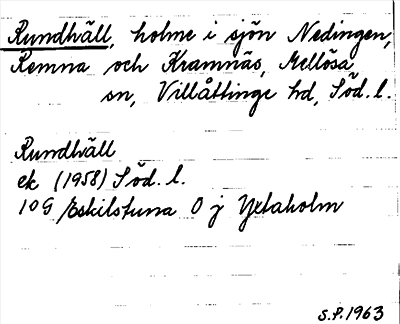 Rundhäll, holme i sjön Nedingen,
Remna och Kramnäs, Mellösa
sn, Villåttinge hd, Söd. l.
Rundhäll
ek (1958) Söd. l.
10G Eskilstuna O j Yxtaholm
S.P. 1963